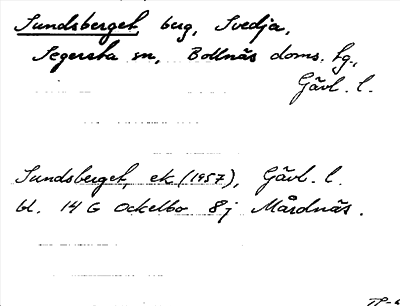 Sundsberget, berg, Svedja,
Segersta sn, Bollnäs doms. tg.,
Gävl. l.
Sundsberget, ek. (1957), Gävl. l.
bl. 14 G Ockelbo 8 j Mårdnäs.